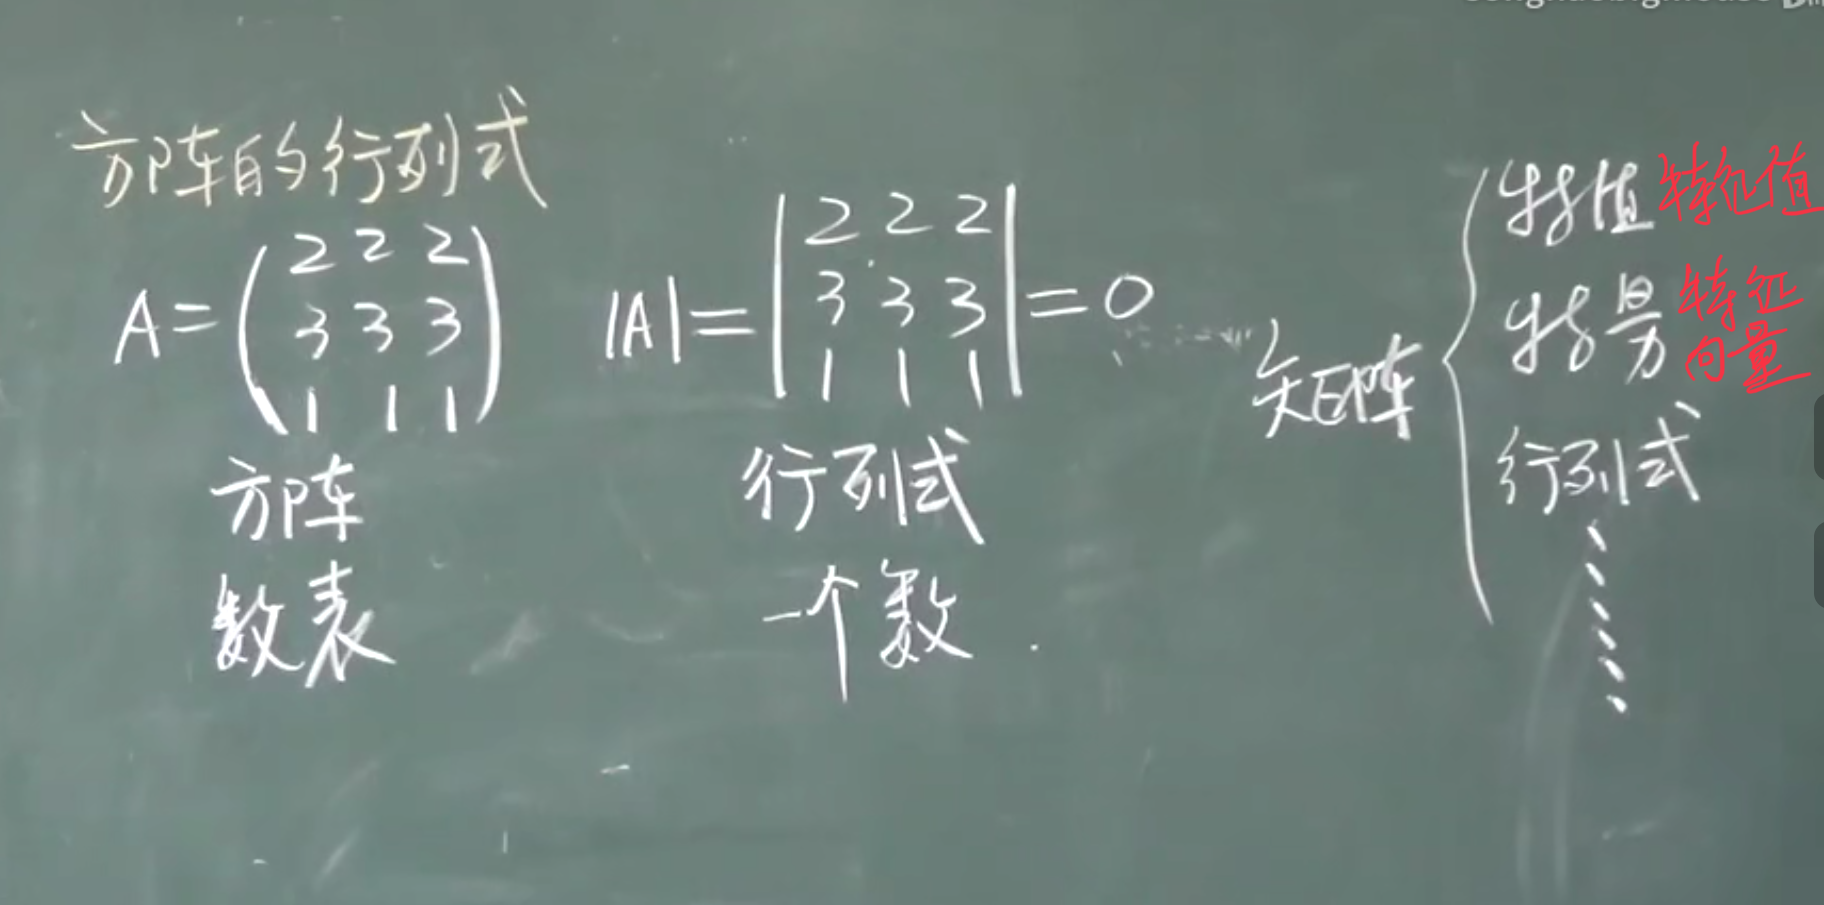 方阵的行列式
A = ( 2 2 2
3 3 3
1 1 1 )
方阵
数表
|A| = | 2 2 2
3 3 3
1 1 1 | = 0
行列式
一个数
矩阵 {
特值 特征值
特量 特征
向量
行列式